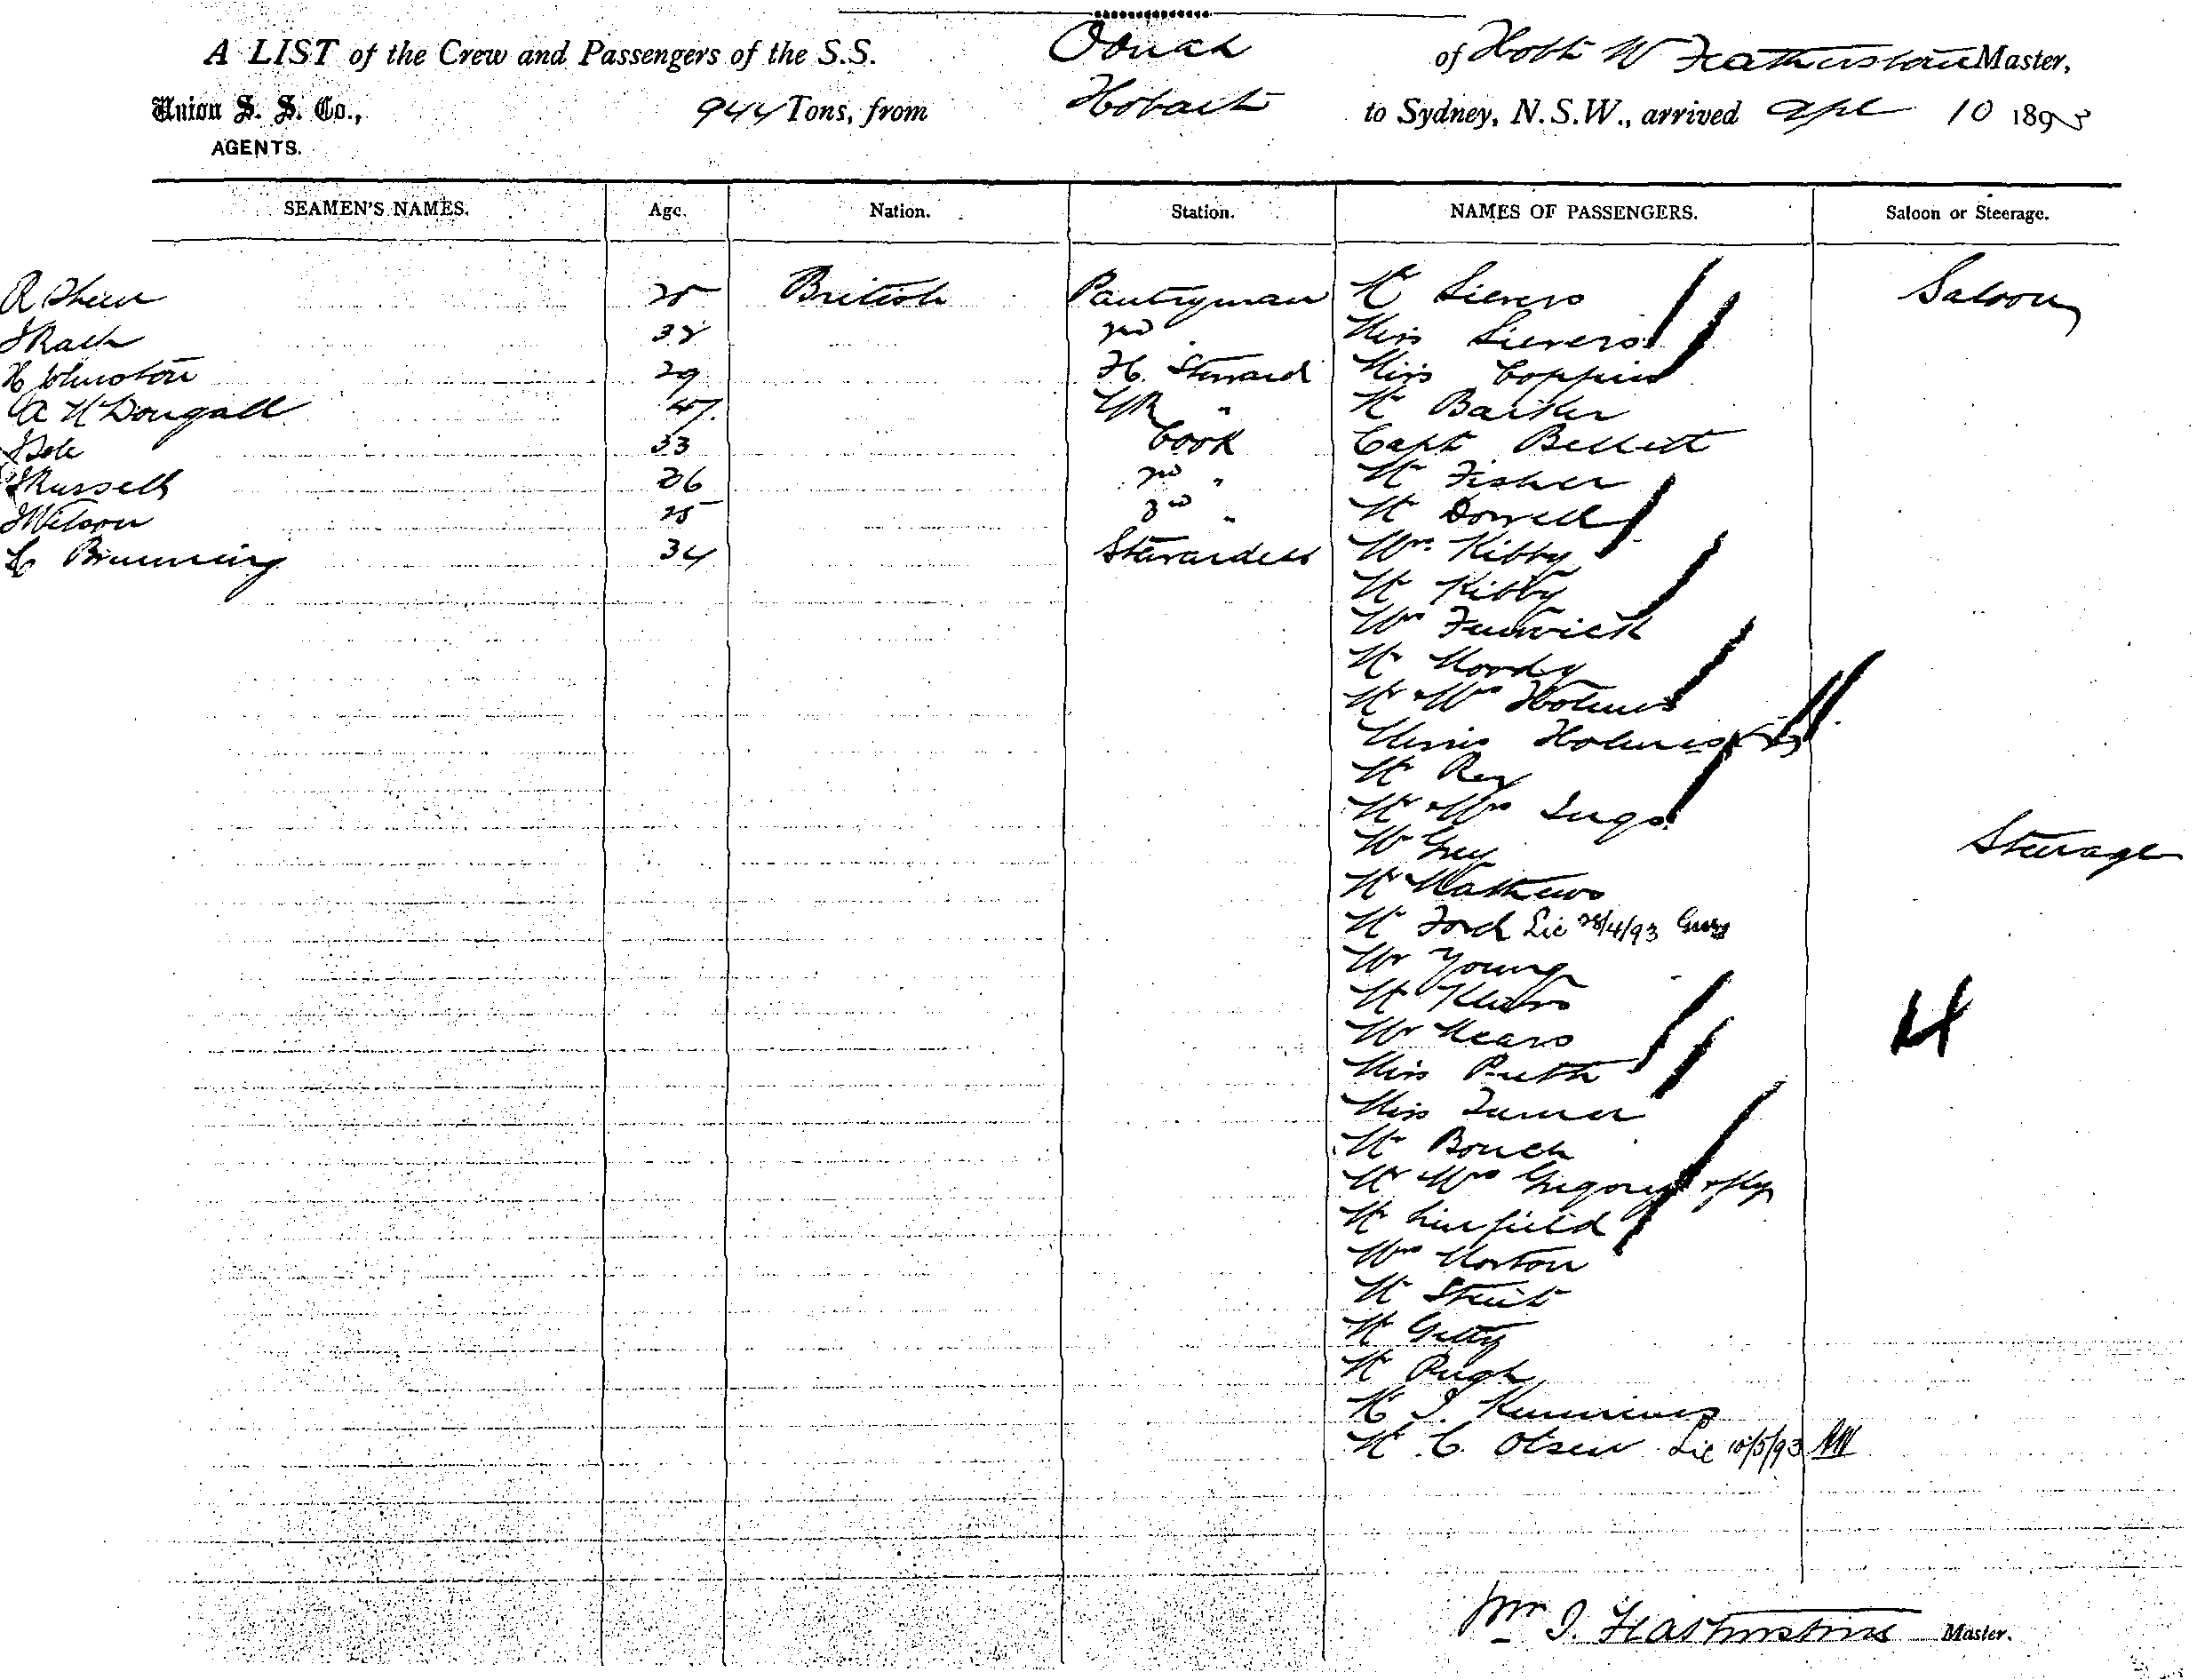 A LIST of the Crew and Passengers of the S.S. Oonah of Hobt W Featherstone Master,
Union S. S. Co., 944 Tons, from Hobart to Sydney, N.S.W., arrived Apl 10 1893
AGENTS.
SEAMEN'S NAMES. Age. Nation. Station. NAMES OF PASSENGERS. Saloon or Steerage.
R 25 British Pantryman Mr Sievers Saloon
38 2nd Miss Sievers
H Johnston 29 H. Steward Miss Coppin
A McDougall 47 " Mr Barker
53 Cook Capt Bellett
J Russell 26 2nd " Mr Fisher
J Wilson 25 3rd " Mr Dowell
34 Stewardess Mrs Kibby
Mr Kibby
Mrs Fenwick
Mr Moody
Mr Mrs Holmes
Misses Holmes
Mr Rex
Mr Mrs
Mr Grey Steerage
Mr Mathews
Mr Ford Lic 28/4/93
Mr Young
Mr
Mr Mears
Miss
Miss Turner
Mr
Mr Mrs Gregory
Mr Linfield
Mrs Morton
Mr
Mr Getty
Mr Pugh
Mr
Mr C. Olsen Lic 10/5/93
Wm J. Featherstone Master.